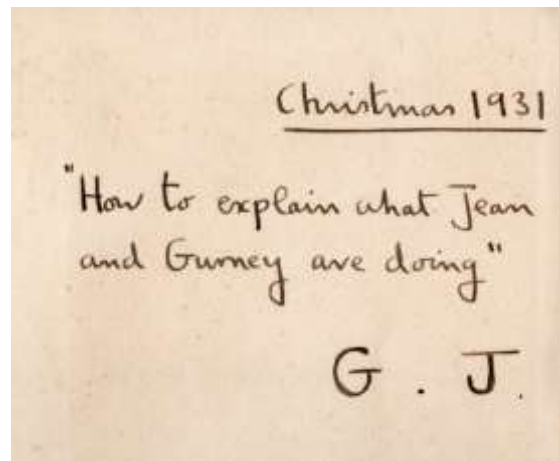 Christmas 1931
"How to explain what Jean
and Gurney are doing"
G. J.